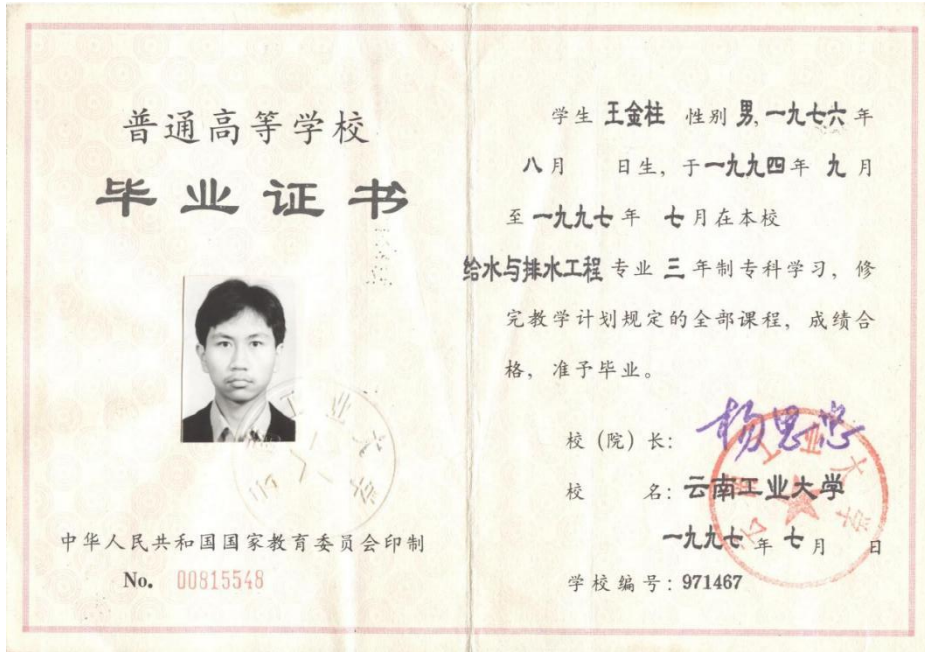 普通高等学校
毕业证书
中华人民共和国国家教育委员会印制
No. 00815548
学生 王金柱 性别 男, 一九七六 年
八 月 日生, 于 一九九四 年 九 月
至 一九九七 年 七 月在本校
给水与排水工程 专业 三 年制专科学习, 修
完教学计划规定的全部课程, 成绩合
格, 准予毕业。
校 (院) 长:
校 名: 云南工业大学
一九九七 年 七 月 日
学校编号: 971467